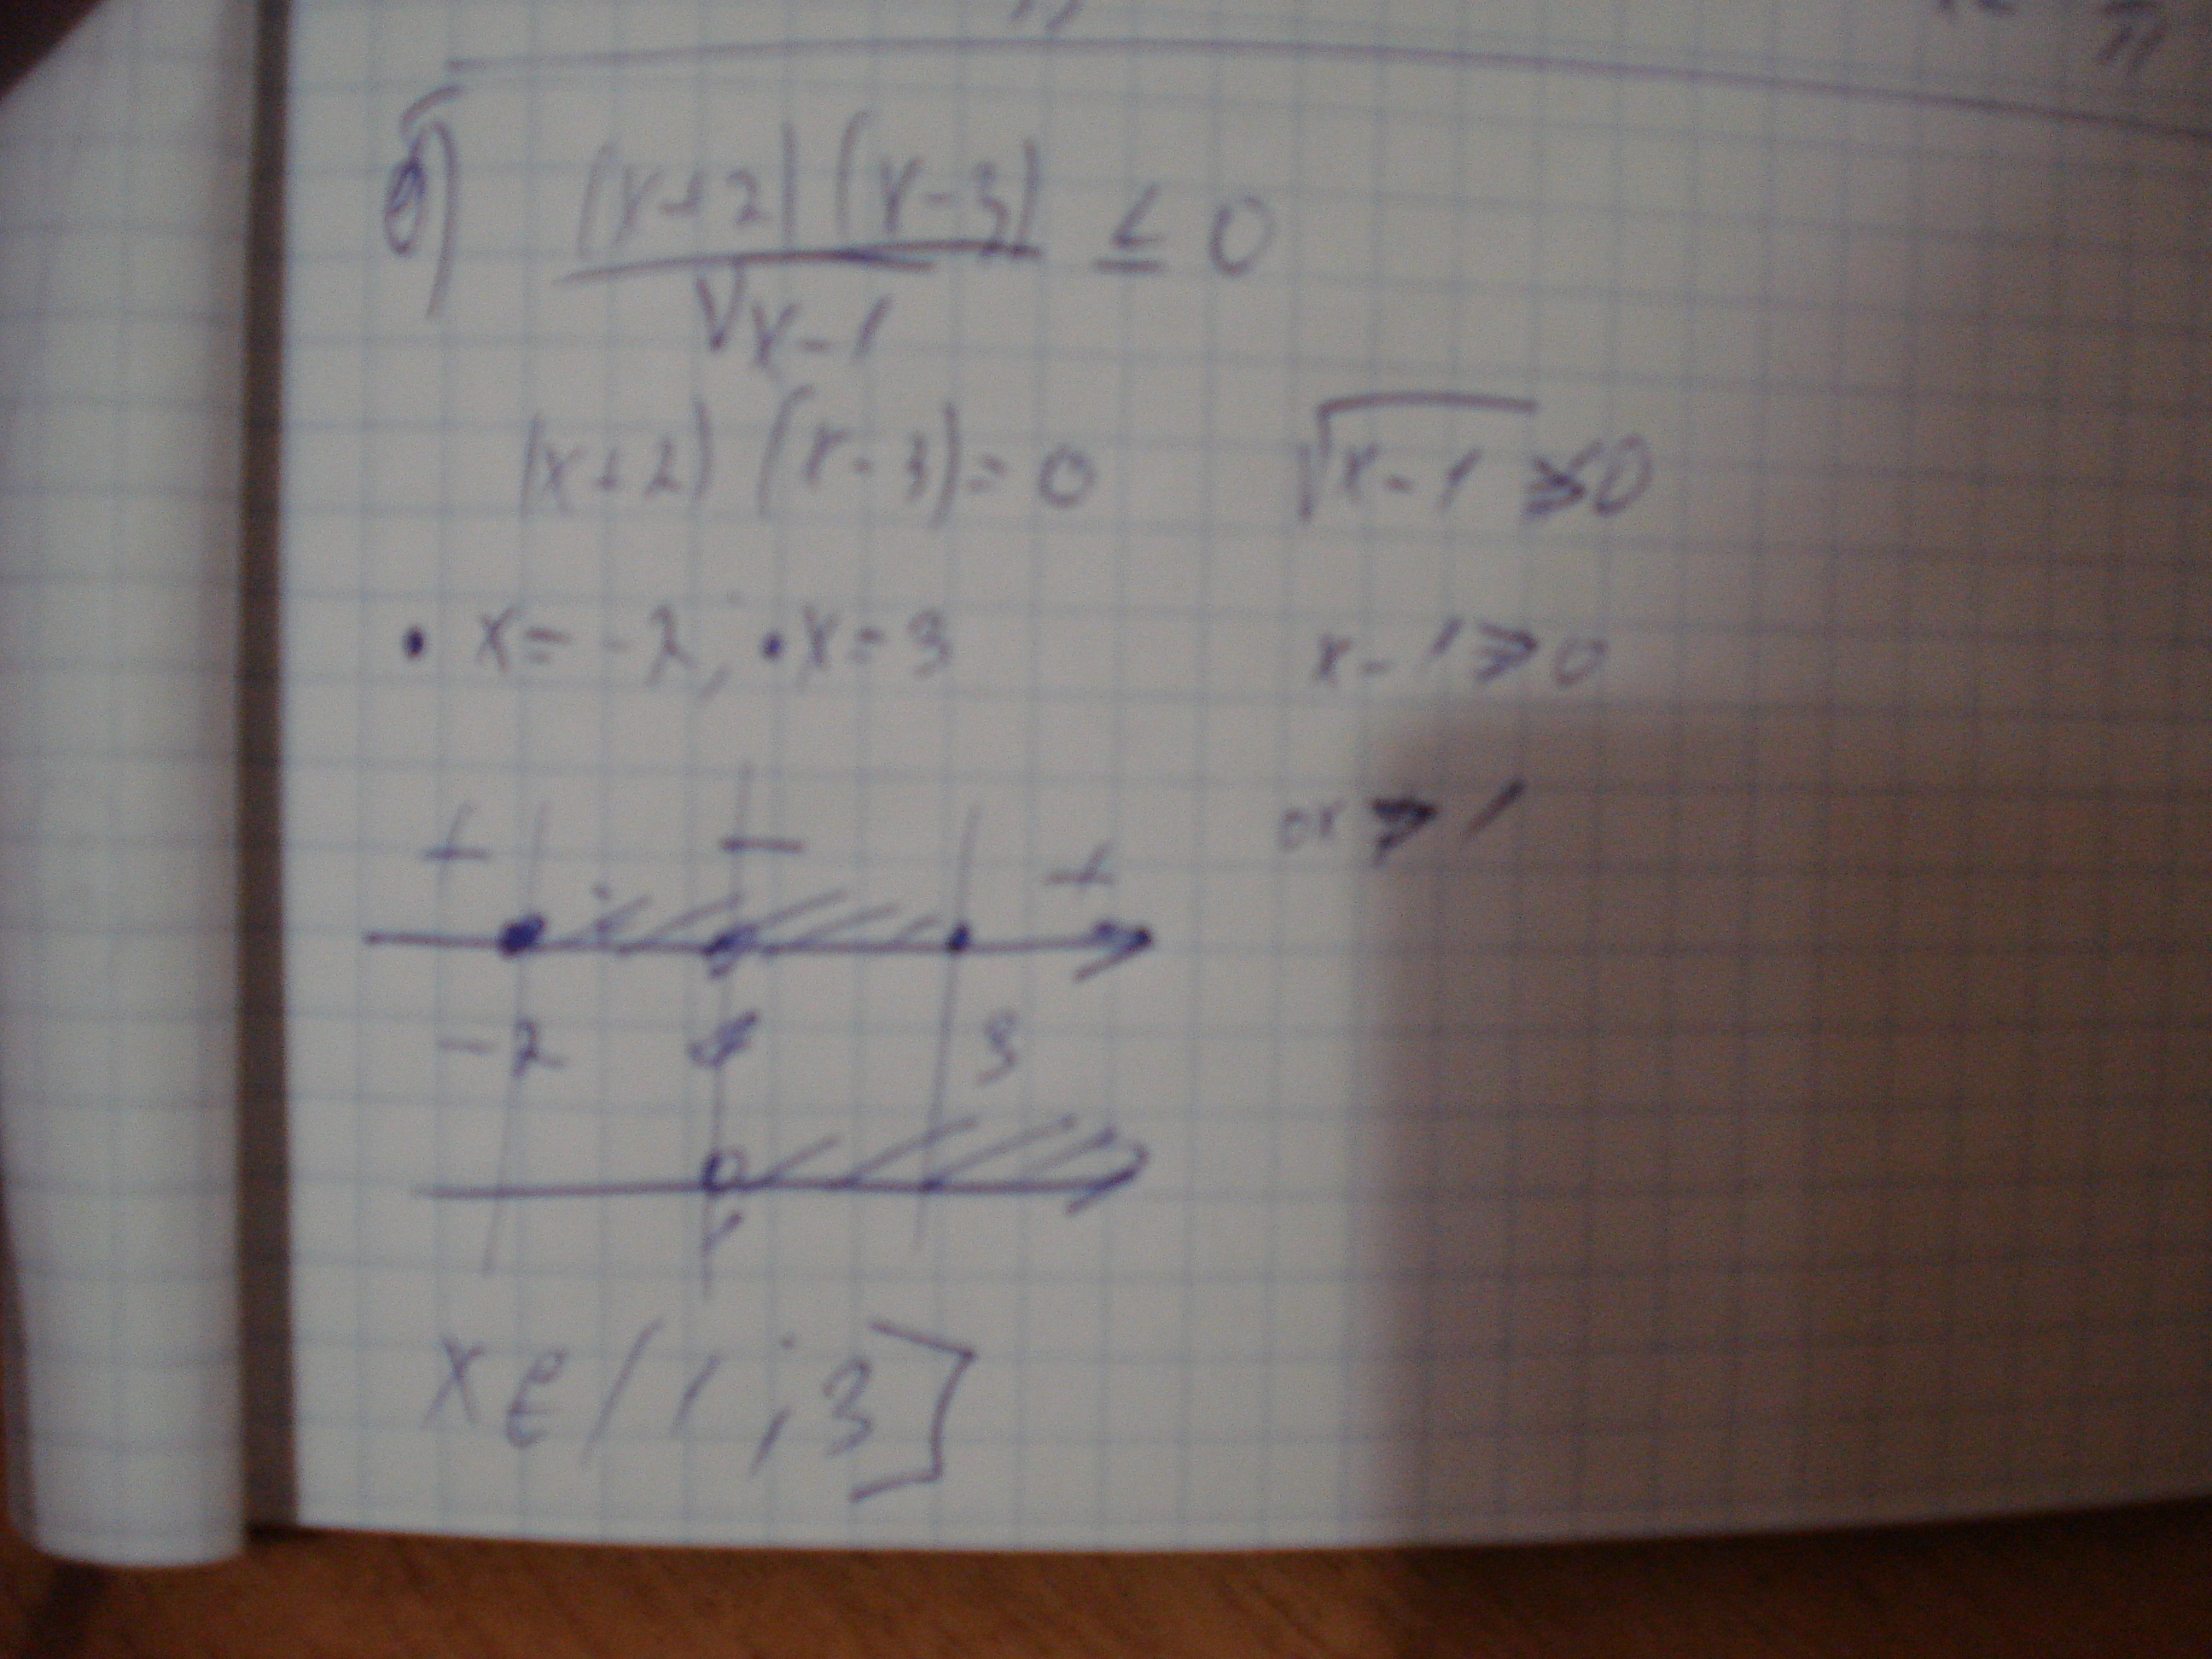 б) (x+2)(x-3) ≤ 0
√x-1
(x+2)(x-3)=0 √x-1 0
• x=-2, • x=3 x-1 ⩾ 0
x ⩾ 1
+ - +
-2 3
1
x∈(1;3]